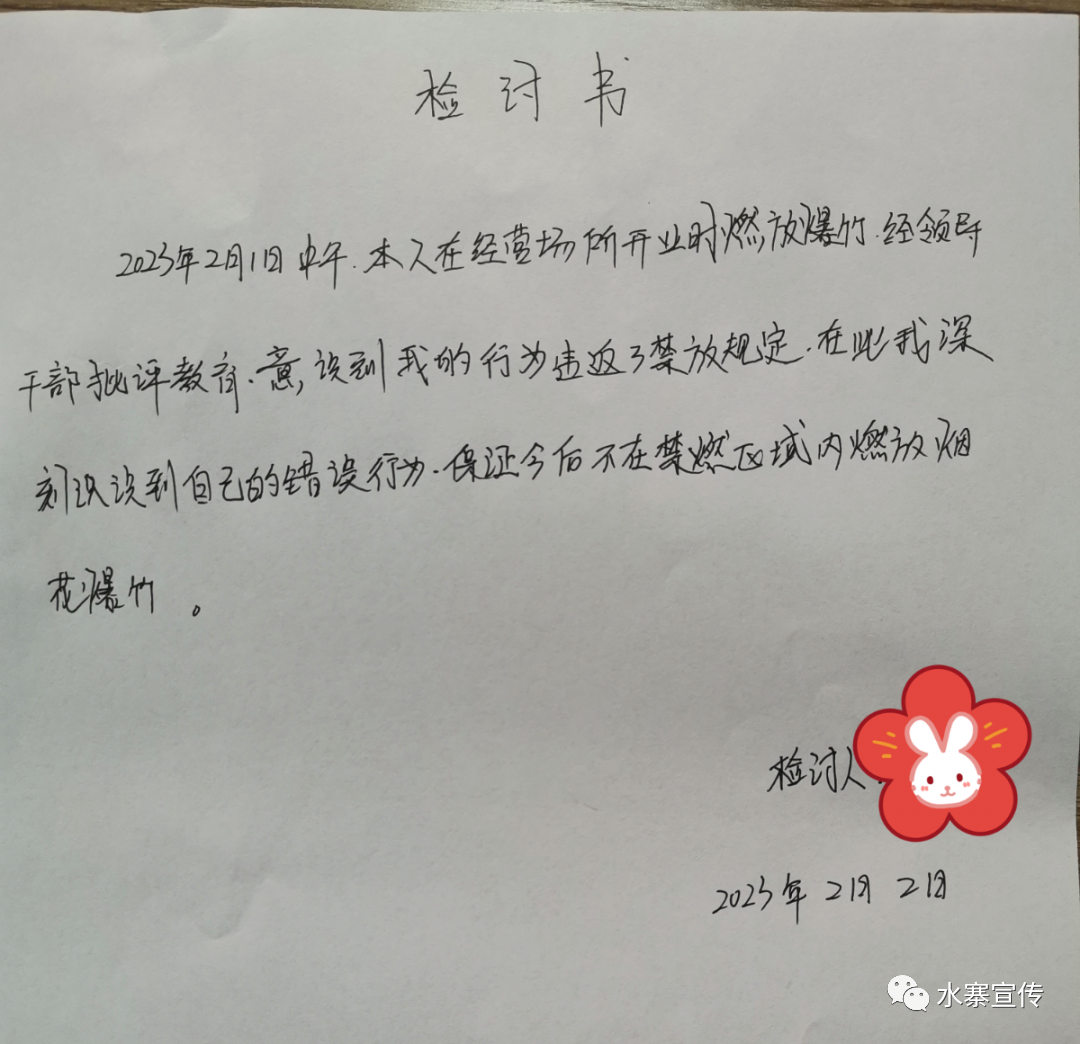 检讨书
2023年2月1日中午.本人在经营场所开业时燃放爆竹.经领导
干部批评教育.意识到我的行为违返了禁放规定.在此我深
刻认识到自己的错误行为.保证今后不在禁燃区域内燃放烟
花爆竹。
检讨人:
2023年2月2日
水寨宣传